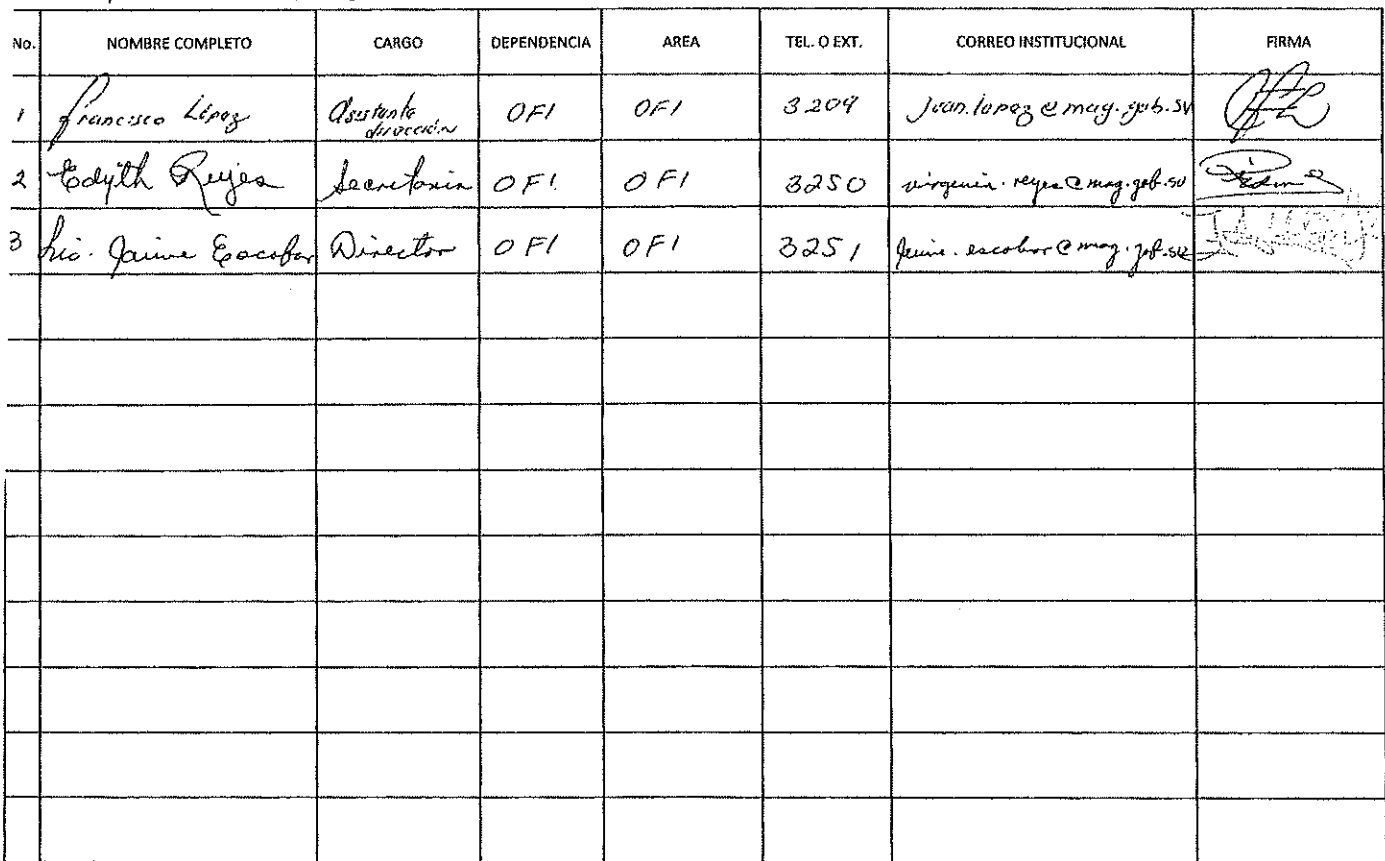 No. NOMBRE COMPLETO CARGO DEPENDENCIA AREA TEL. O EXT. CORREO INSTITUCIONAL FIRMA
1 Francisco López Asistente dirección OFI OFI 3209 juan.lopez@mag.gob.sv
2 Edyth Reyes Secretaria OFI OFI 3250 virginia.reyes@mag.gob.sv
3 Lic. Jaime Escobar Director OFI OFI 3251 jaime.escobar@mag.gob.sv